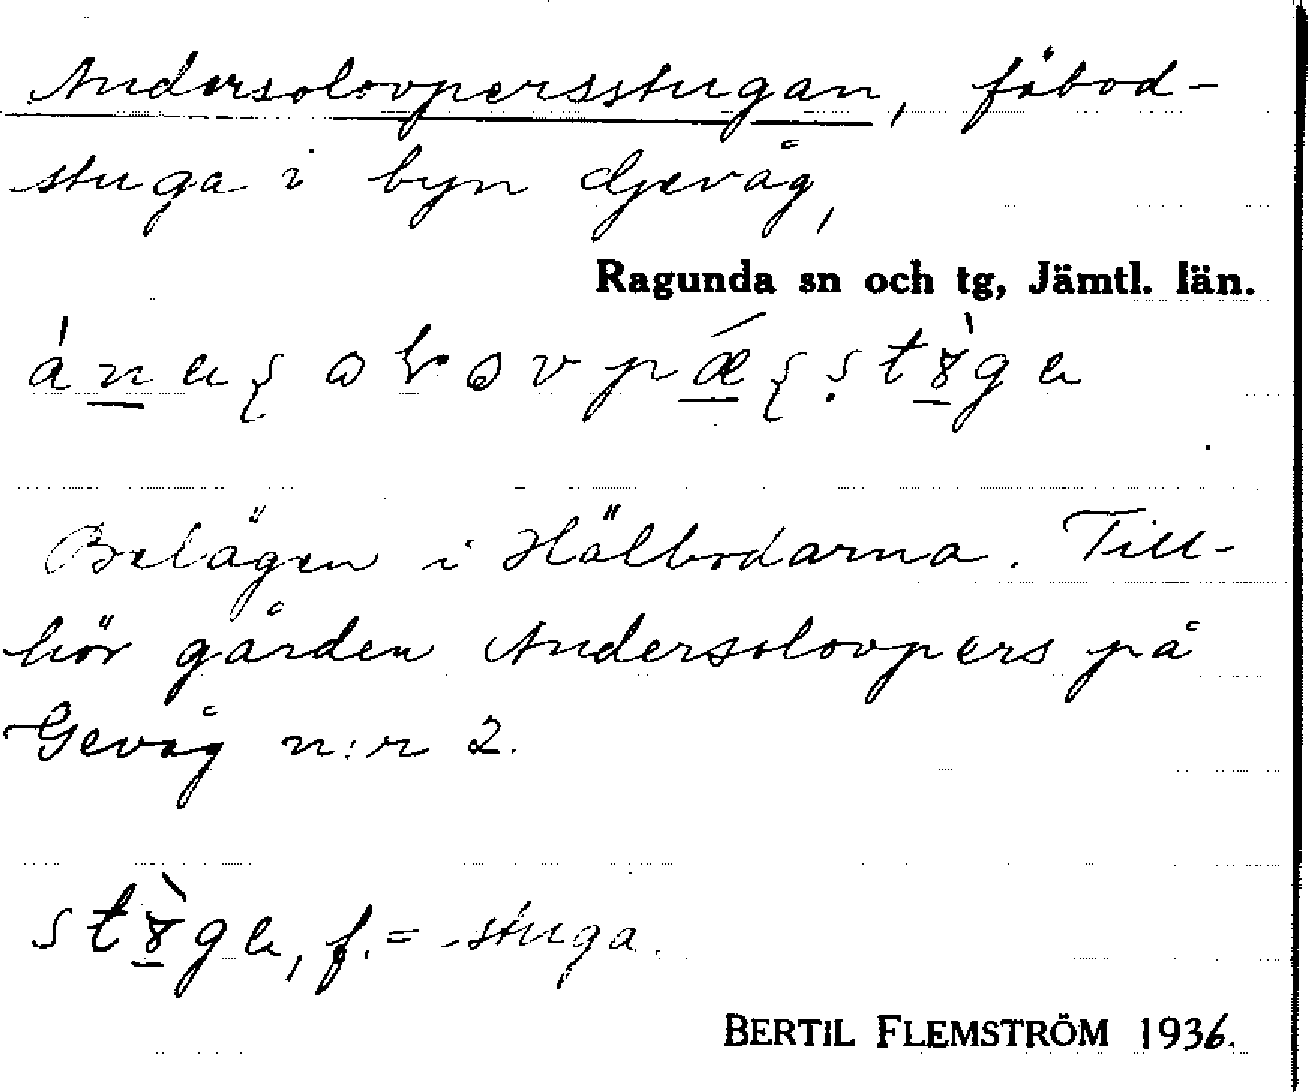 Andersolovpersstugan, fäbod-
stuga i byn Gevåg,
Ragunda sn och tg, Jämtl. län.
Belägen i Hälbodarna. Till-
hör gården Andersolovpers på
Gevåg n:r 2.
f. = stuga.
BERTIL FLEMSTRÖM 1936.